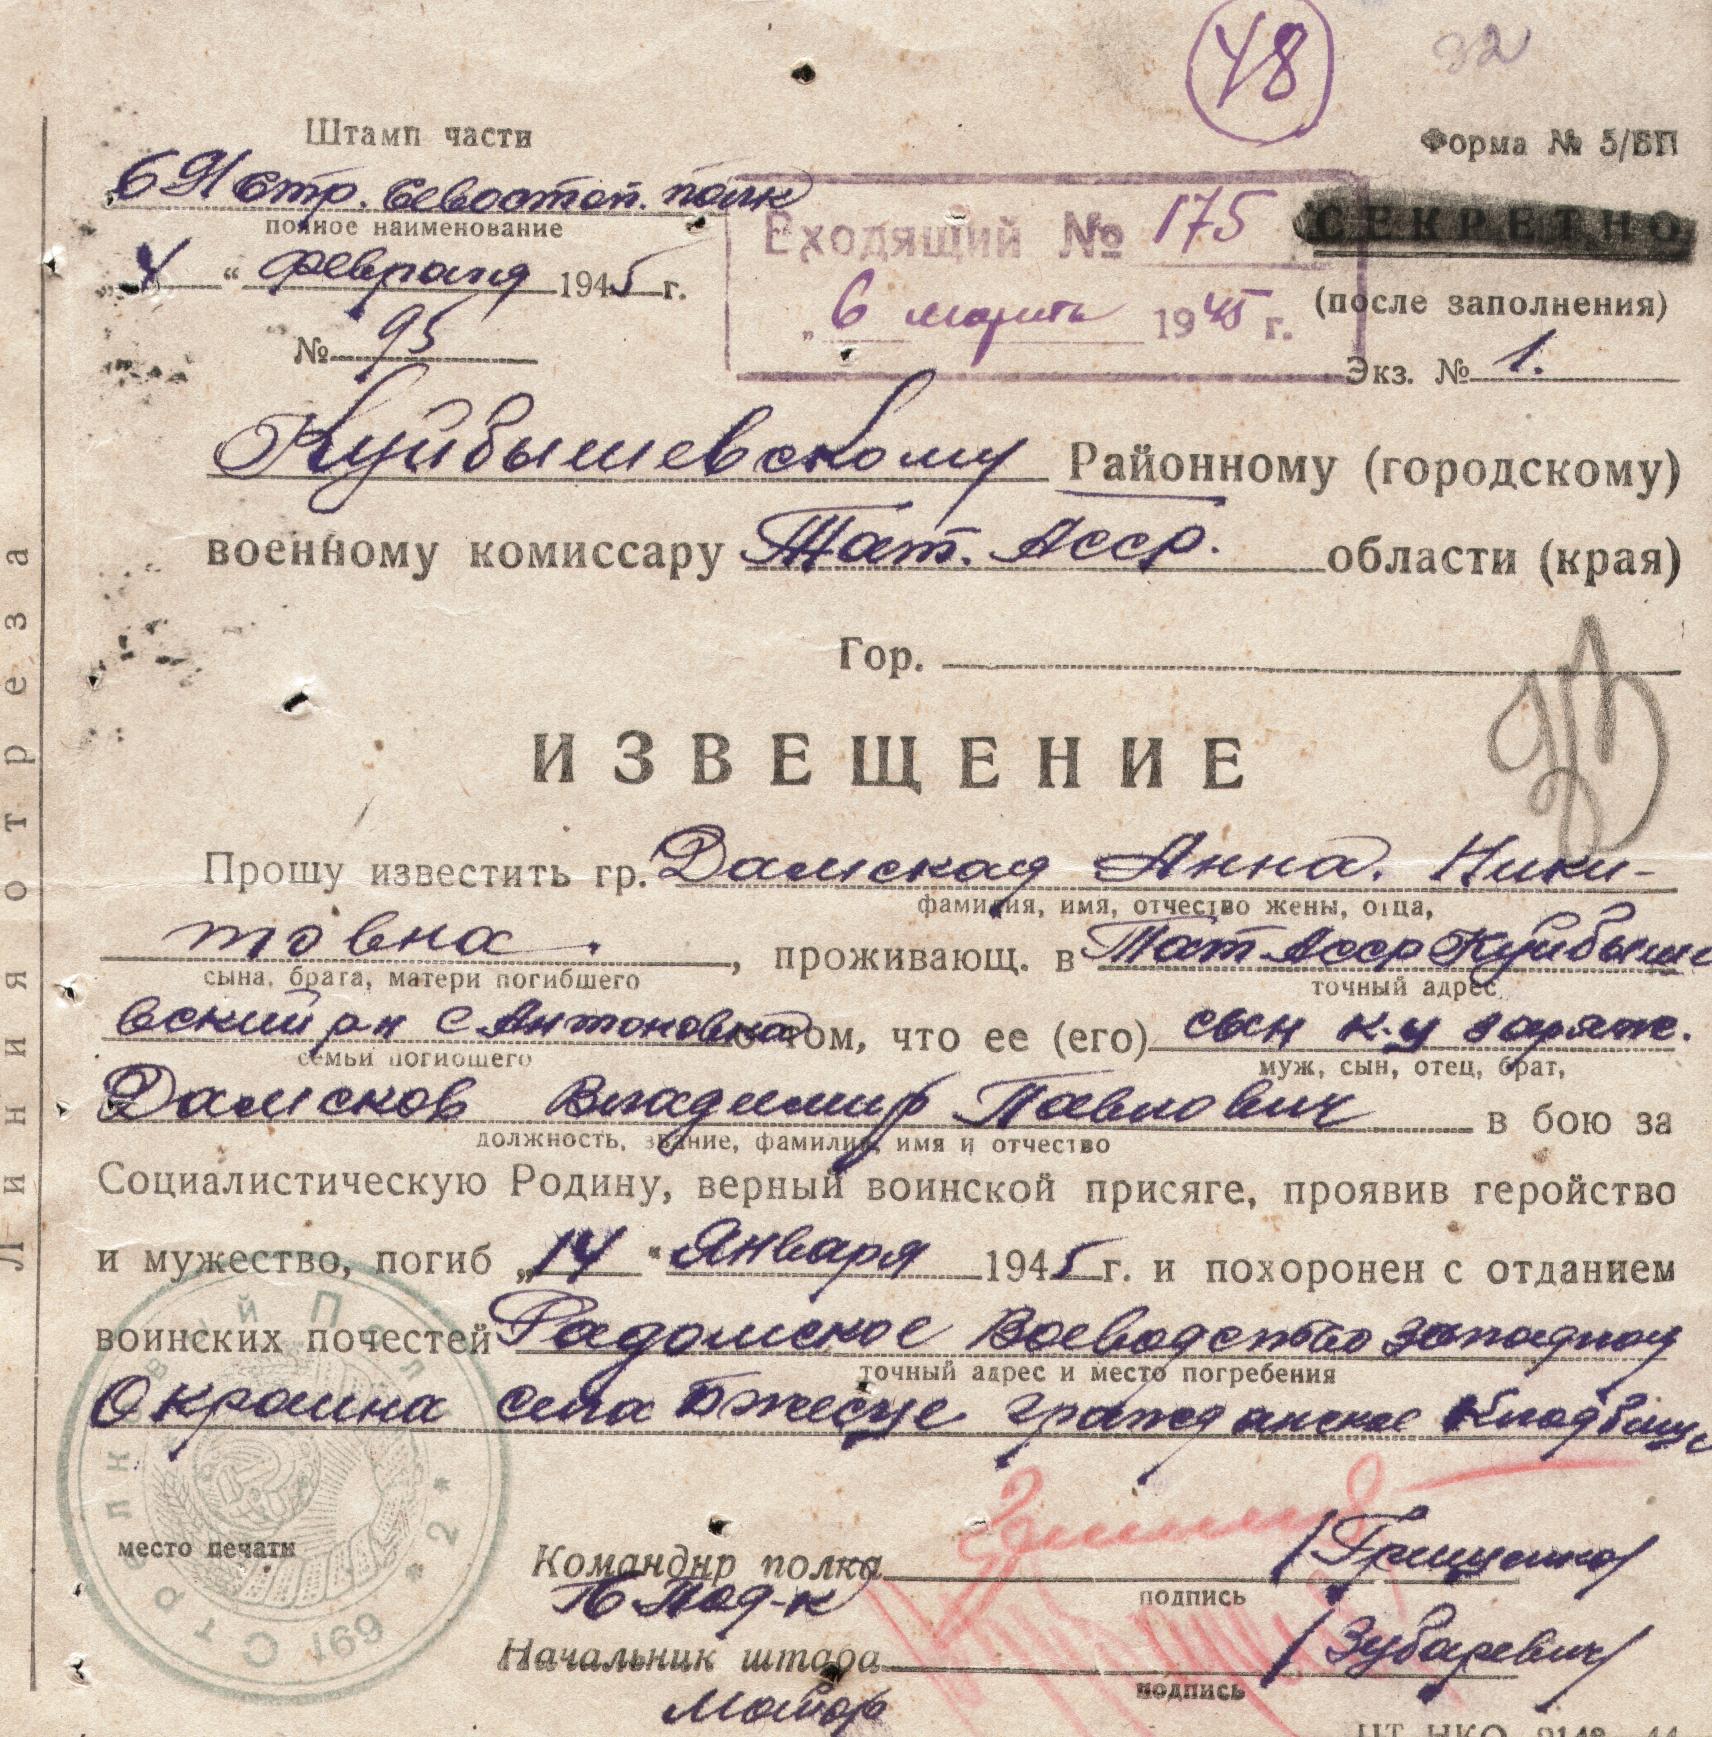 48
32
Штамп части
Форма № 5/БП
691 стр. Севастоп. полк
полное наименование
СЕКРЕТНО
Входящий № 175
„4“ февраля 1945 г.
(после заполнения)
„6 марта 1945 г.
№ 95
Экз. № 1.
Куйбышевскому Районному (городскому)
военному комиссару Тат. Асср. области (края)
Гор.
ИЗВЕЩЕНИЕ
Прошу известить гр. Дамская Анна. Ники-
фамилия, имя, отчество жены, отца,
товна. , проживающ. в Тат Асср Куйбыше
сына, брата, матери погибшего
точный адрес
вский рн с Антоновка о том, что ее (его) сын к-у заряж.
семьи погибшего
муж, сын, отец, брат,
Дамсков Владимир Павлович в бою за
должность, звание, фамилия, имя и отчество
Социалистическую Родину, верный воинской присяге, проявив геройство
и мужество, погиб „14“ Января 1945 г. и похоронен с отданием
воинских почестей Радомское Воеводство западная
точный адрес и место погребения
Окраина села Бжесце гражданское Кладбище
место печати
Командир полка /Грищенко/
подпись
П Под-к
Начальник штаба /Зубаревич/
подпись
Майор
Линия отреза